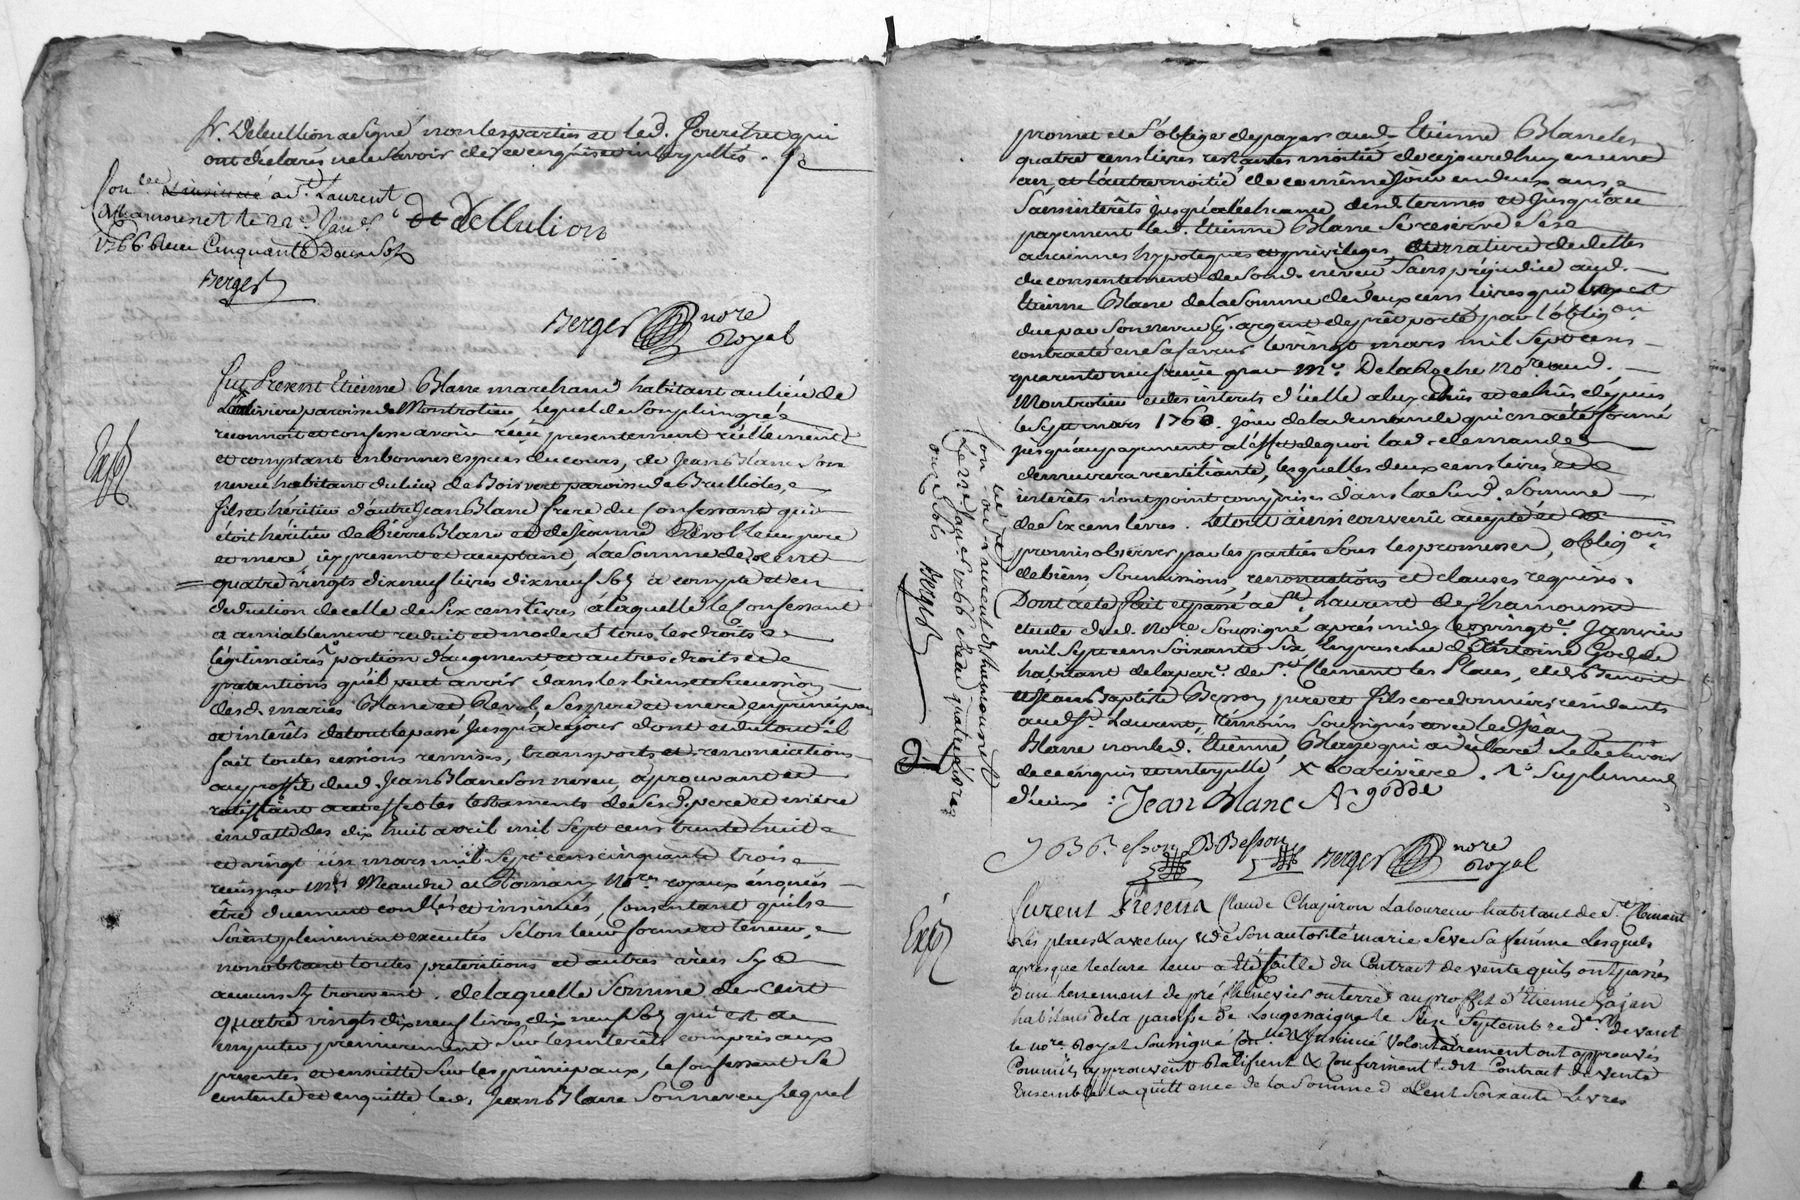 Sr. Delullion a Signé non les parties et led. Pourchet qui
ont déclarés ne le Savoir de ce enquis et interpellés .
Con.lée & insinué a St. Laurent
de Chamousset le 22e Janer
1766 Reçu Cinquante Deux Sols
Berger
de Dellulion
Berger nore
Royal
Fut Present Etienne Blanc marchand habitant au lieu de
La Riviere paroisse de Montrotier, Lequel de Son plein gré
reconnoit et confesse avoir réçu presentement réellement
et comptant en bonnes especes du cours, de Jean Blanc Son
neveu habitant du lieu de Boisvert paroisse de Brullioles,
fils et héritier d'autre Jean Blanc frere du Confessant qui
étoit héritier de Pierre Blanc et de Jeanne Revol leurs pere
et mere, icy present et acceptant, La Somme de Cent
quatre vingts dix neuf livres dix neuf Sols a compte et en
deduction de celle de Six cens livres a laquelle le Confessant
a amiablement reduit et moderé tous les droits
légitimaires portion d'augment et autres droits et
pretentions qu'il peut avoir dans les biens et Succession
desd. mariés Blanc et Revol Ses pere et mere en principaux
et interêts de tout le passé jusqu'a ce jour dont et du tout il
fait toutes cessions remises, transports et renonciations
au proffit dud. Jean Blanc Son neveu, aprouvant et
ratiffiant a cet effet les testaments de Sesd. pere et mere
en datte des dix huit avril mil Sept cens trente huit
et vingt un mars mil Sept cens cinquante trois
reçus par Mes Meaudre et Romany Nores royaux enquis
être duement conlés et insinués, Consentant qu'ils
Soient pleinement executés Selon leur forme et teneur,
nonobstant toutes preteritions et autres vices Sy
aucuns S'y trouvent . de laquelle Somme de Cent
quatre vingts dix neuf livres dix neuf Sols qui est a
imputer premierement Sur les interêts compris aux
presentes et ensuitte Sur les principaux, le Confessant Se
contente et en quitte led. Jean Blanc Son neveu Lequel
Expé
promet et S'oblige de payer aud. Etienne Blanc les
quatre cens livres restantes moitié de ce jourd'huy en une
an, et l'autre moitié de ce même jour en deux ans
Sans interêts jusqu'a l'echeance desd. termes et jusqu'au
payement led. Etienne Blanc Se reserve Ses
anciennes hypoteques et privileges et nature de dettes
du consentement de Sond. neveu Sans préjudice aud.
Etienne Blanc de la Somme de deux cens livres qui luy est
due par Son neveu pr. argent de prêt porté par l'obligon
contracté en Sa faveur le vingt mars mil Sept cens
quarante neuf reçue par Me. Delaroche Nore aud.
Montrotier et des interêts d'icelle a luy dus et echus dépuis
le Sept mars 1760. Jour de la demande qui en a été formé
jusqu'au payement a l'effet de quoi lad. demande
demeurera ventillante, lesquelles deux cens livres et
interêts n'ont point compris dans la Susd. Somme
de Six cens livres . Le tout ainsi convenu accepté et
promis observer par les parties Sous les promesses, obligons
de biens, Soumissions, renonciations et clauses requises .
Dont acte fait et passé a St. Laurent de Chamousset
étude dud. Nore Soussigné après midy le vingte. Janvier
mil Sept cens Soixante Six, En presence de Antoine Godde
habitant de la par.e de St. Clement les Places, et de Benoit
et Jean Baptiste Besson pere et fils cordonniers residants
aud. St. Laurent, témoins Soussignés avec led. Jean
Blanc non led. Etienne Blanc qui a declaré ne le Savoir
de ce enquis et interpellé X La Riviere . 1e Suplement
d'iceux :
Jean Blanc A godde
J B Besson B Besson Berger nore
Royal
Con.lé a St Laurent de Chamousset
Le 22e Janer 1766 Reçu quatre livres
onze Sols Berger
Expé
Furent Présens Claude Chapiron Laboureur habitant de St. Clement
les places & avec luy & de Son autorité marie Seve Sa femme Lesquels
apres que lecture leur a été faitte du Contrat de vente qu'ils ont passés
d'un tenement de pré Chenevier ou terre au proffit d'Etienne
habitans de la paroisse de Longessaigne le Seize Septembre der. devant
le nore. Royal Soussigné Con.lé & Insinué Volontairement ont approuvés
Commis, approuvent Ratifient & Confirment led. Contrat de vente
Ensemble la quittance de la Somme de Cent Soixante Livres